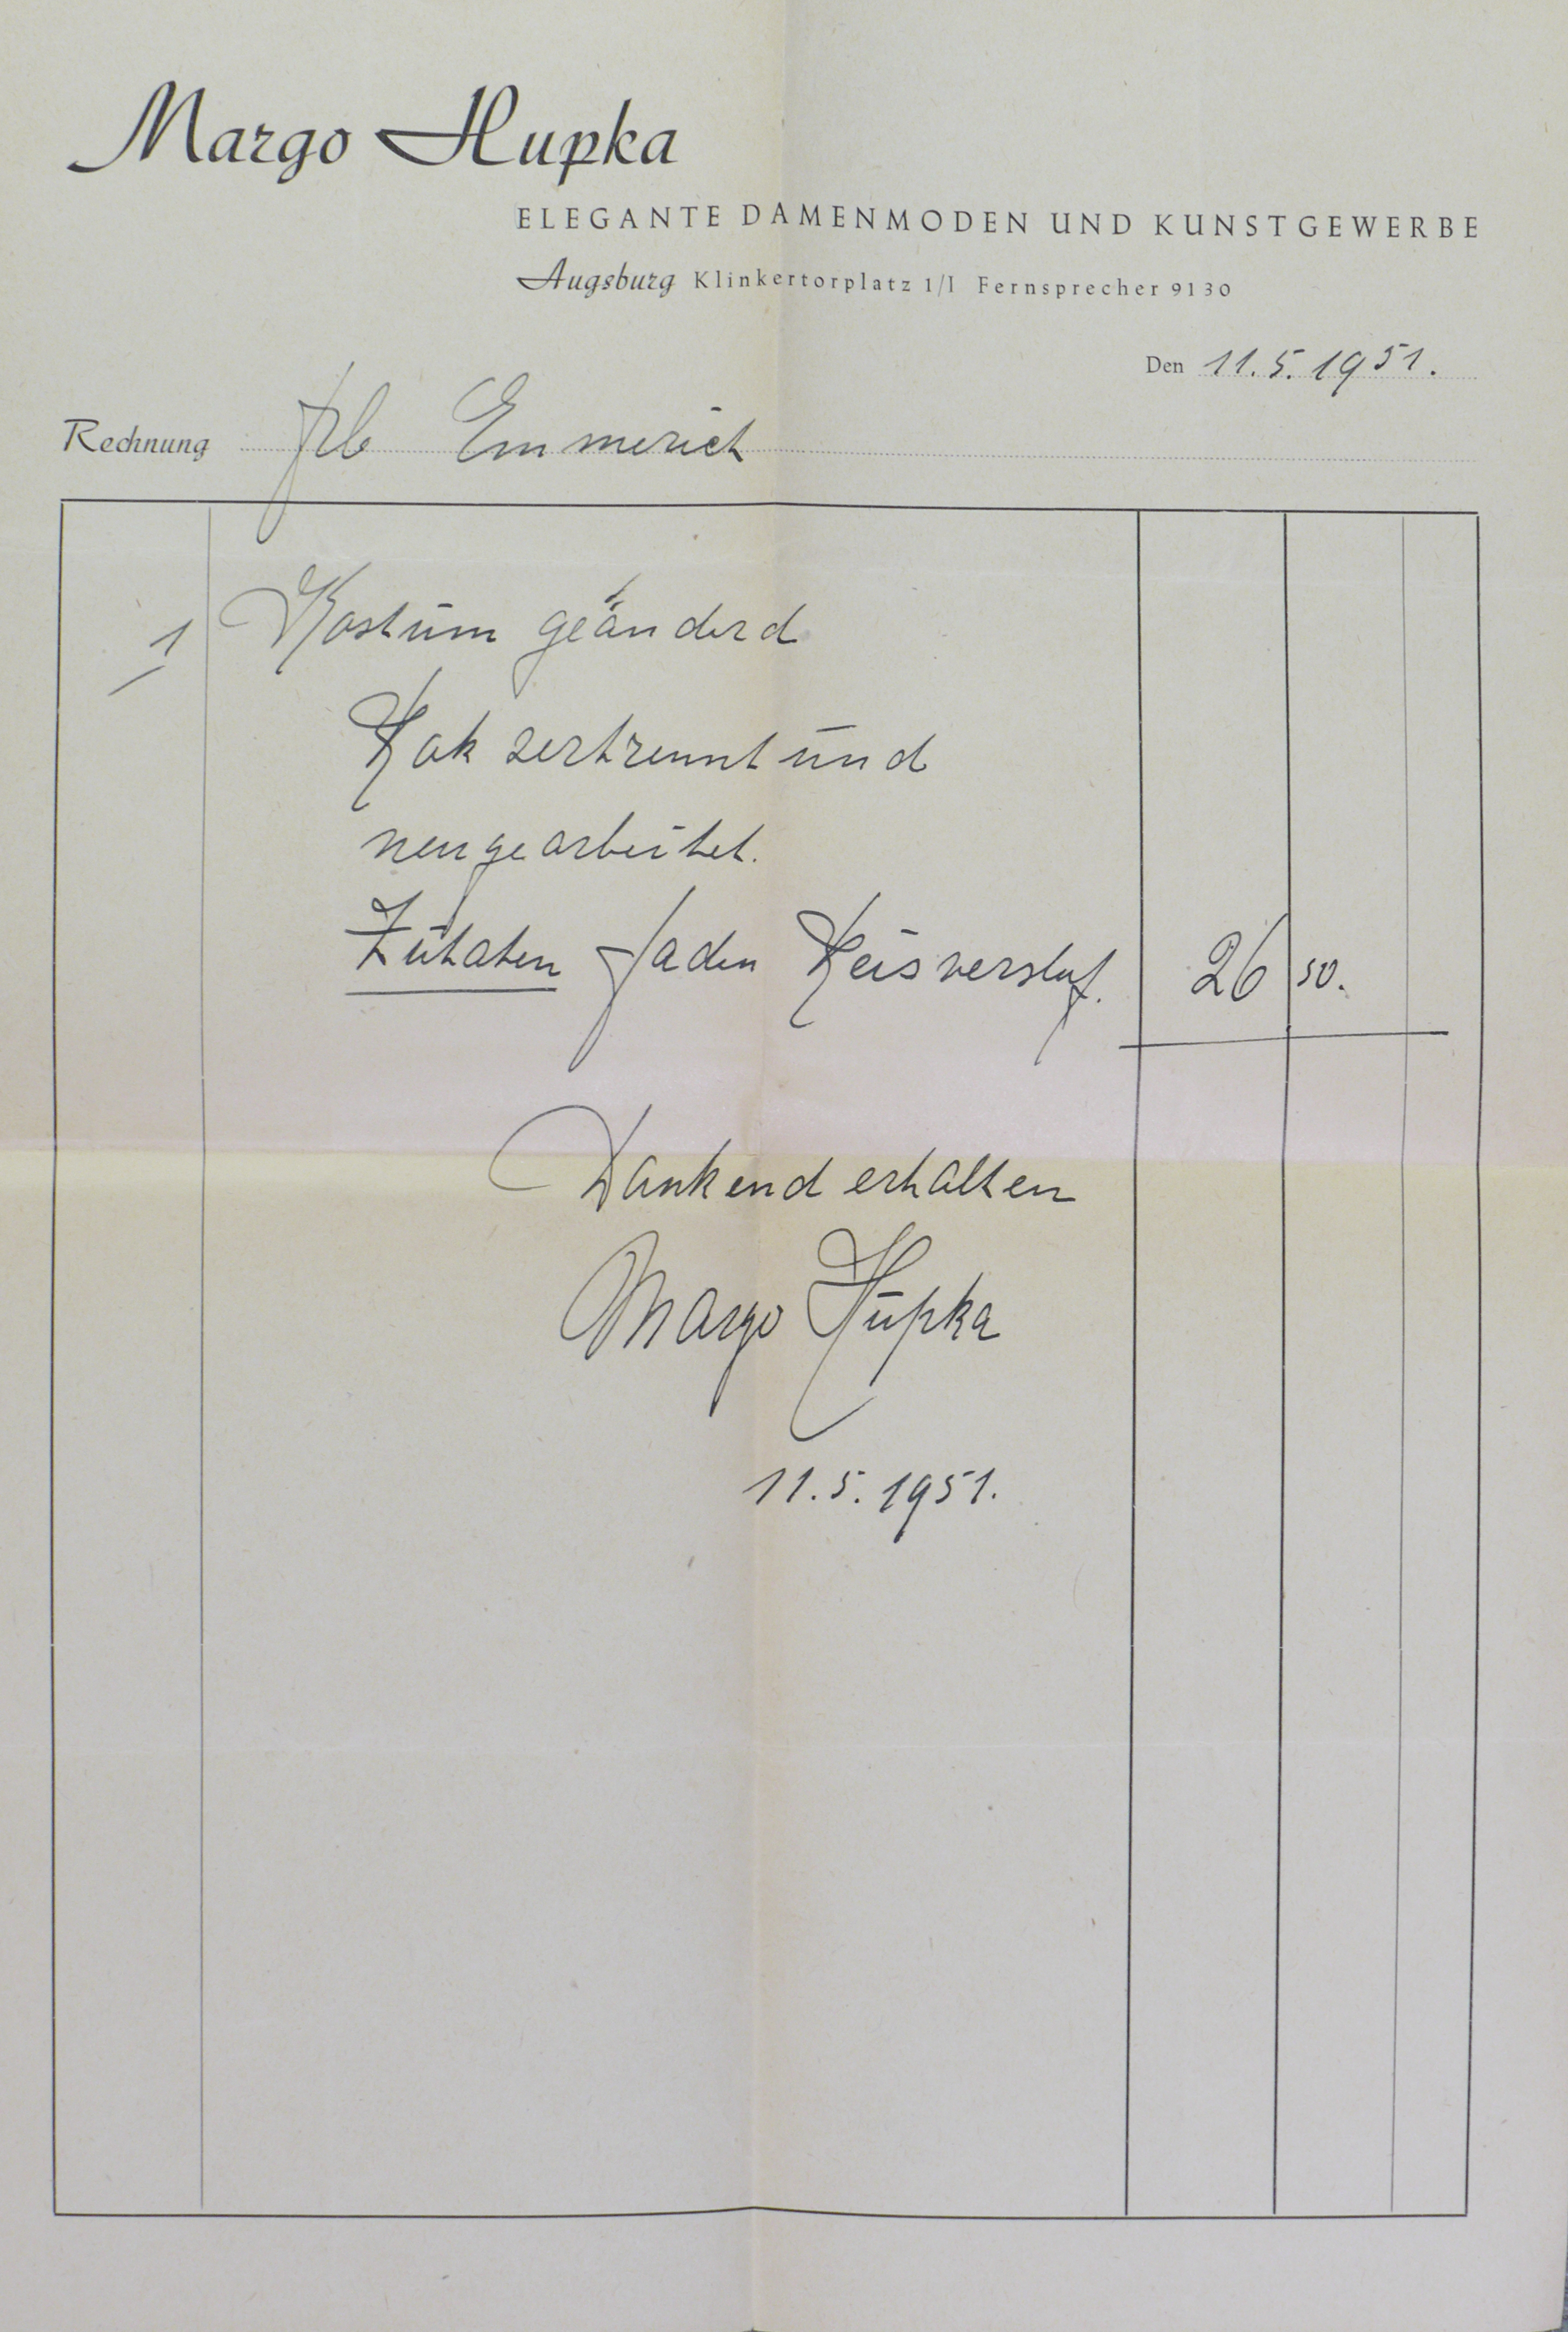 Margo Hupka
ELEGANTE DAMENMODEN UND KUNSTGEWERBE
Augsburg Klinkertorplatz 1/I Fernsprecher 9130
Den 11. 5. 1951.
Rechnung Frl Emmerich
1 Kostüm geänderd
zertrennt und
neu gearbeitet.
Zutaten Faden 26 50.
Dankend erhalten
Margo Hupka
11. 5. 1951.